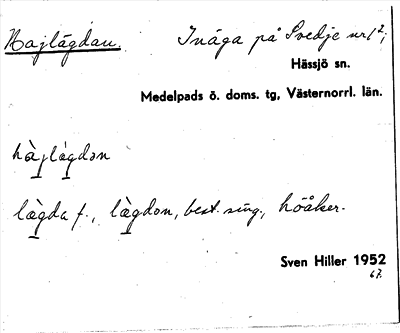 Hajlägdan. Inäga på Svedje nr 1²,
Hässjö sn.
Medelpads ö. doms. tg, Västernorrl. län.
hàjlàgdən
làgda f., làgdon, best. sing., höåker.
Sven Hiller 1952
67.